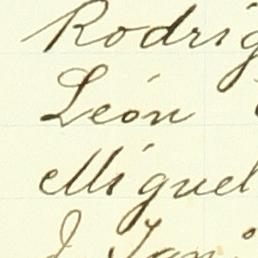 Rodrig
León
Miguel
J